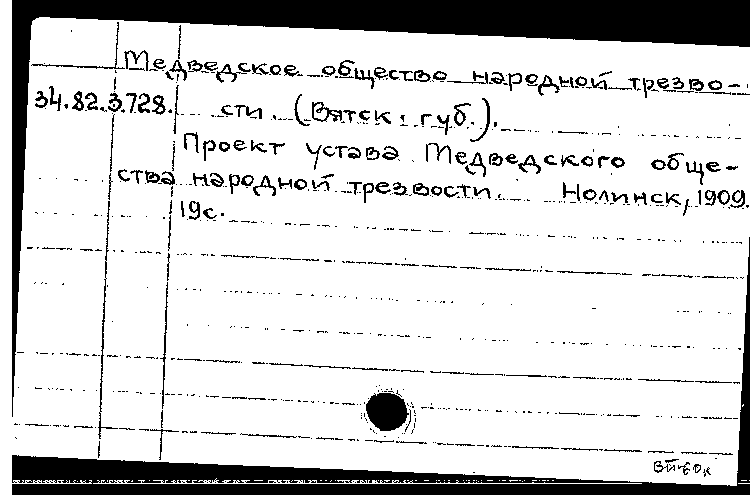 Медведское общество народной трезво-
34.82.3.728. сти. (Вятск. губ.).
Проект устава Медведского обще-
ства народной трезвости. Нолинск, 1909.
19с.